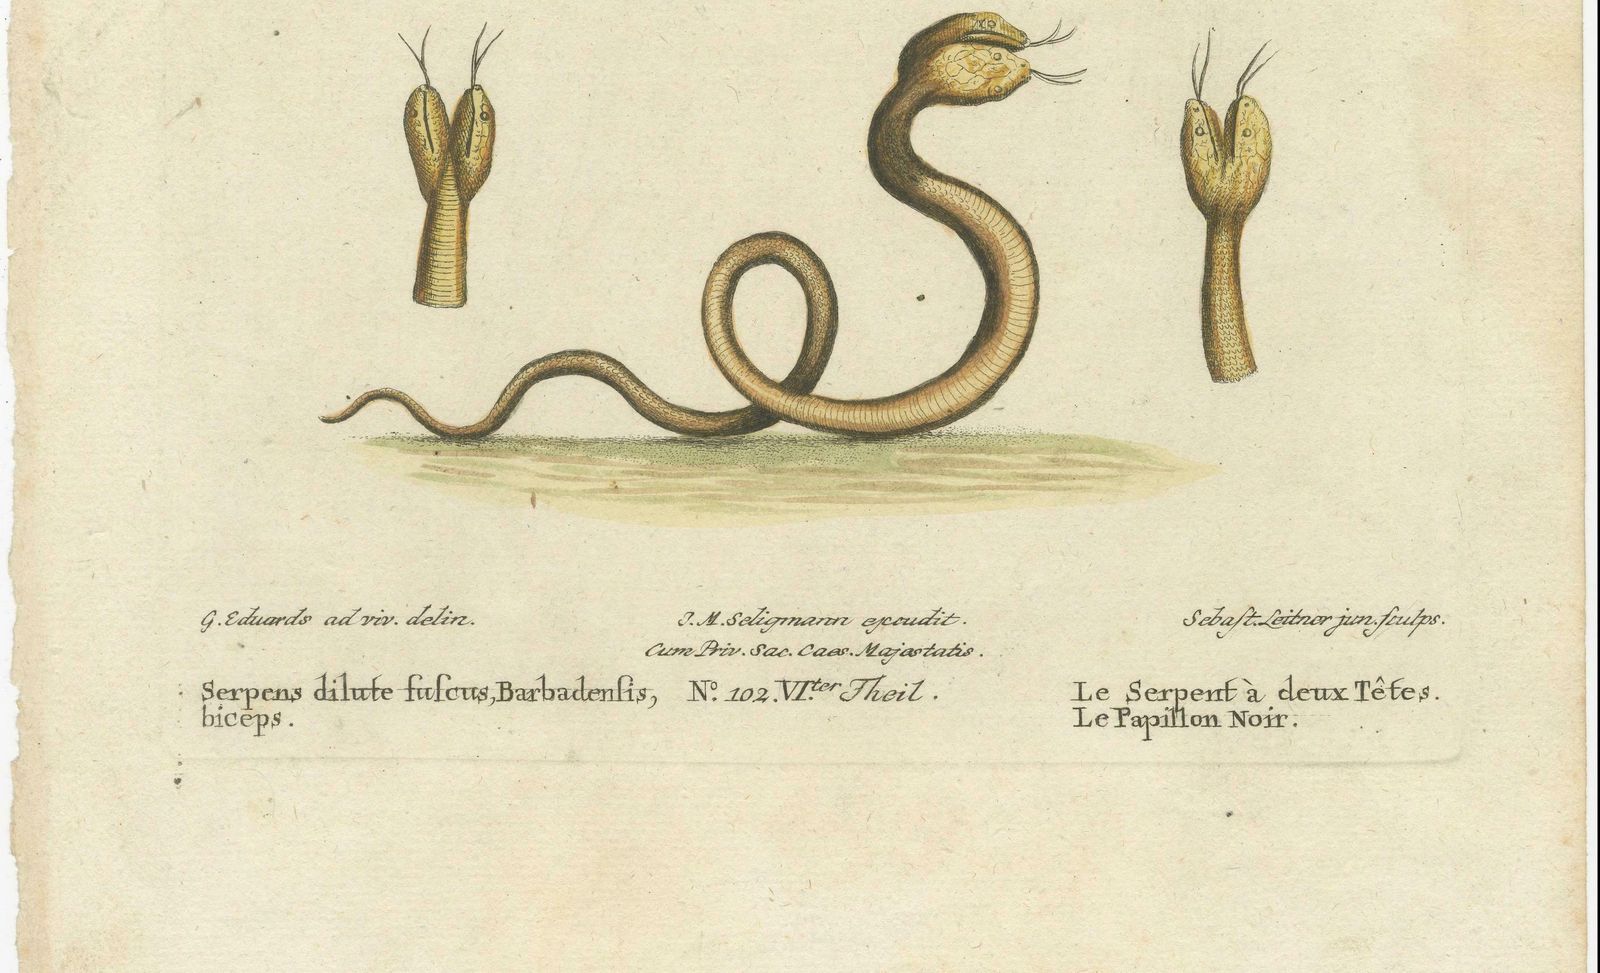 G. Eduards ad viv. delin.
J. M. Seligmann excudit.
Sebaſt. Leitner jun. ſculps.
Cum Priv. Sac. Caes. Majestatis.
Serpens dilute fuſcus, Barbadenſis,
biceps.
No. 102. VI.ter Theil.
Le Serpent à deux Têtes.
Le Papillon Noir.